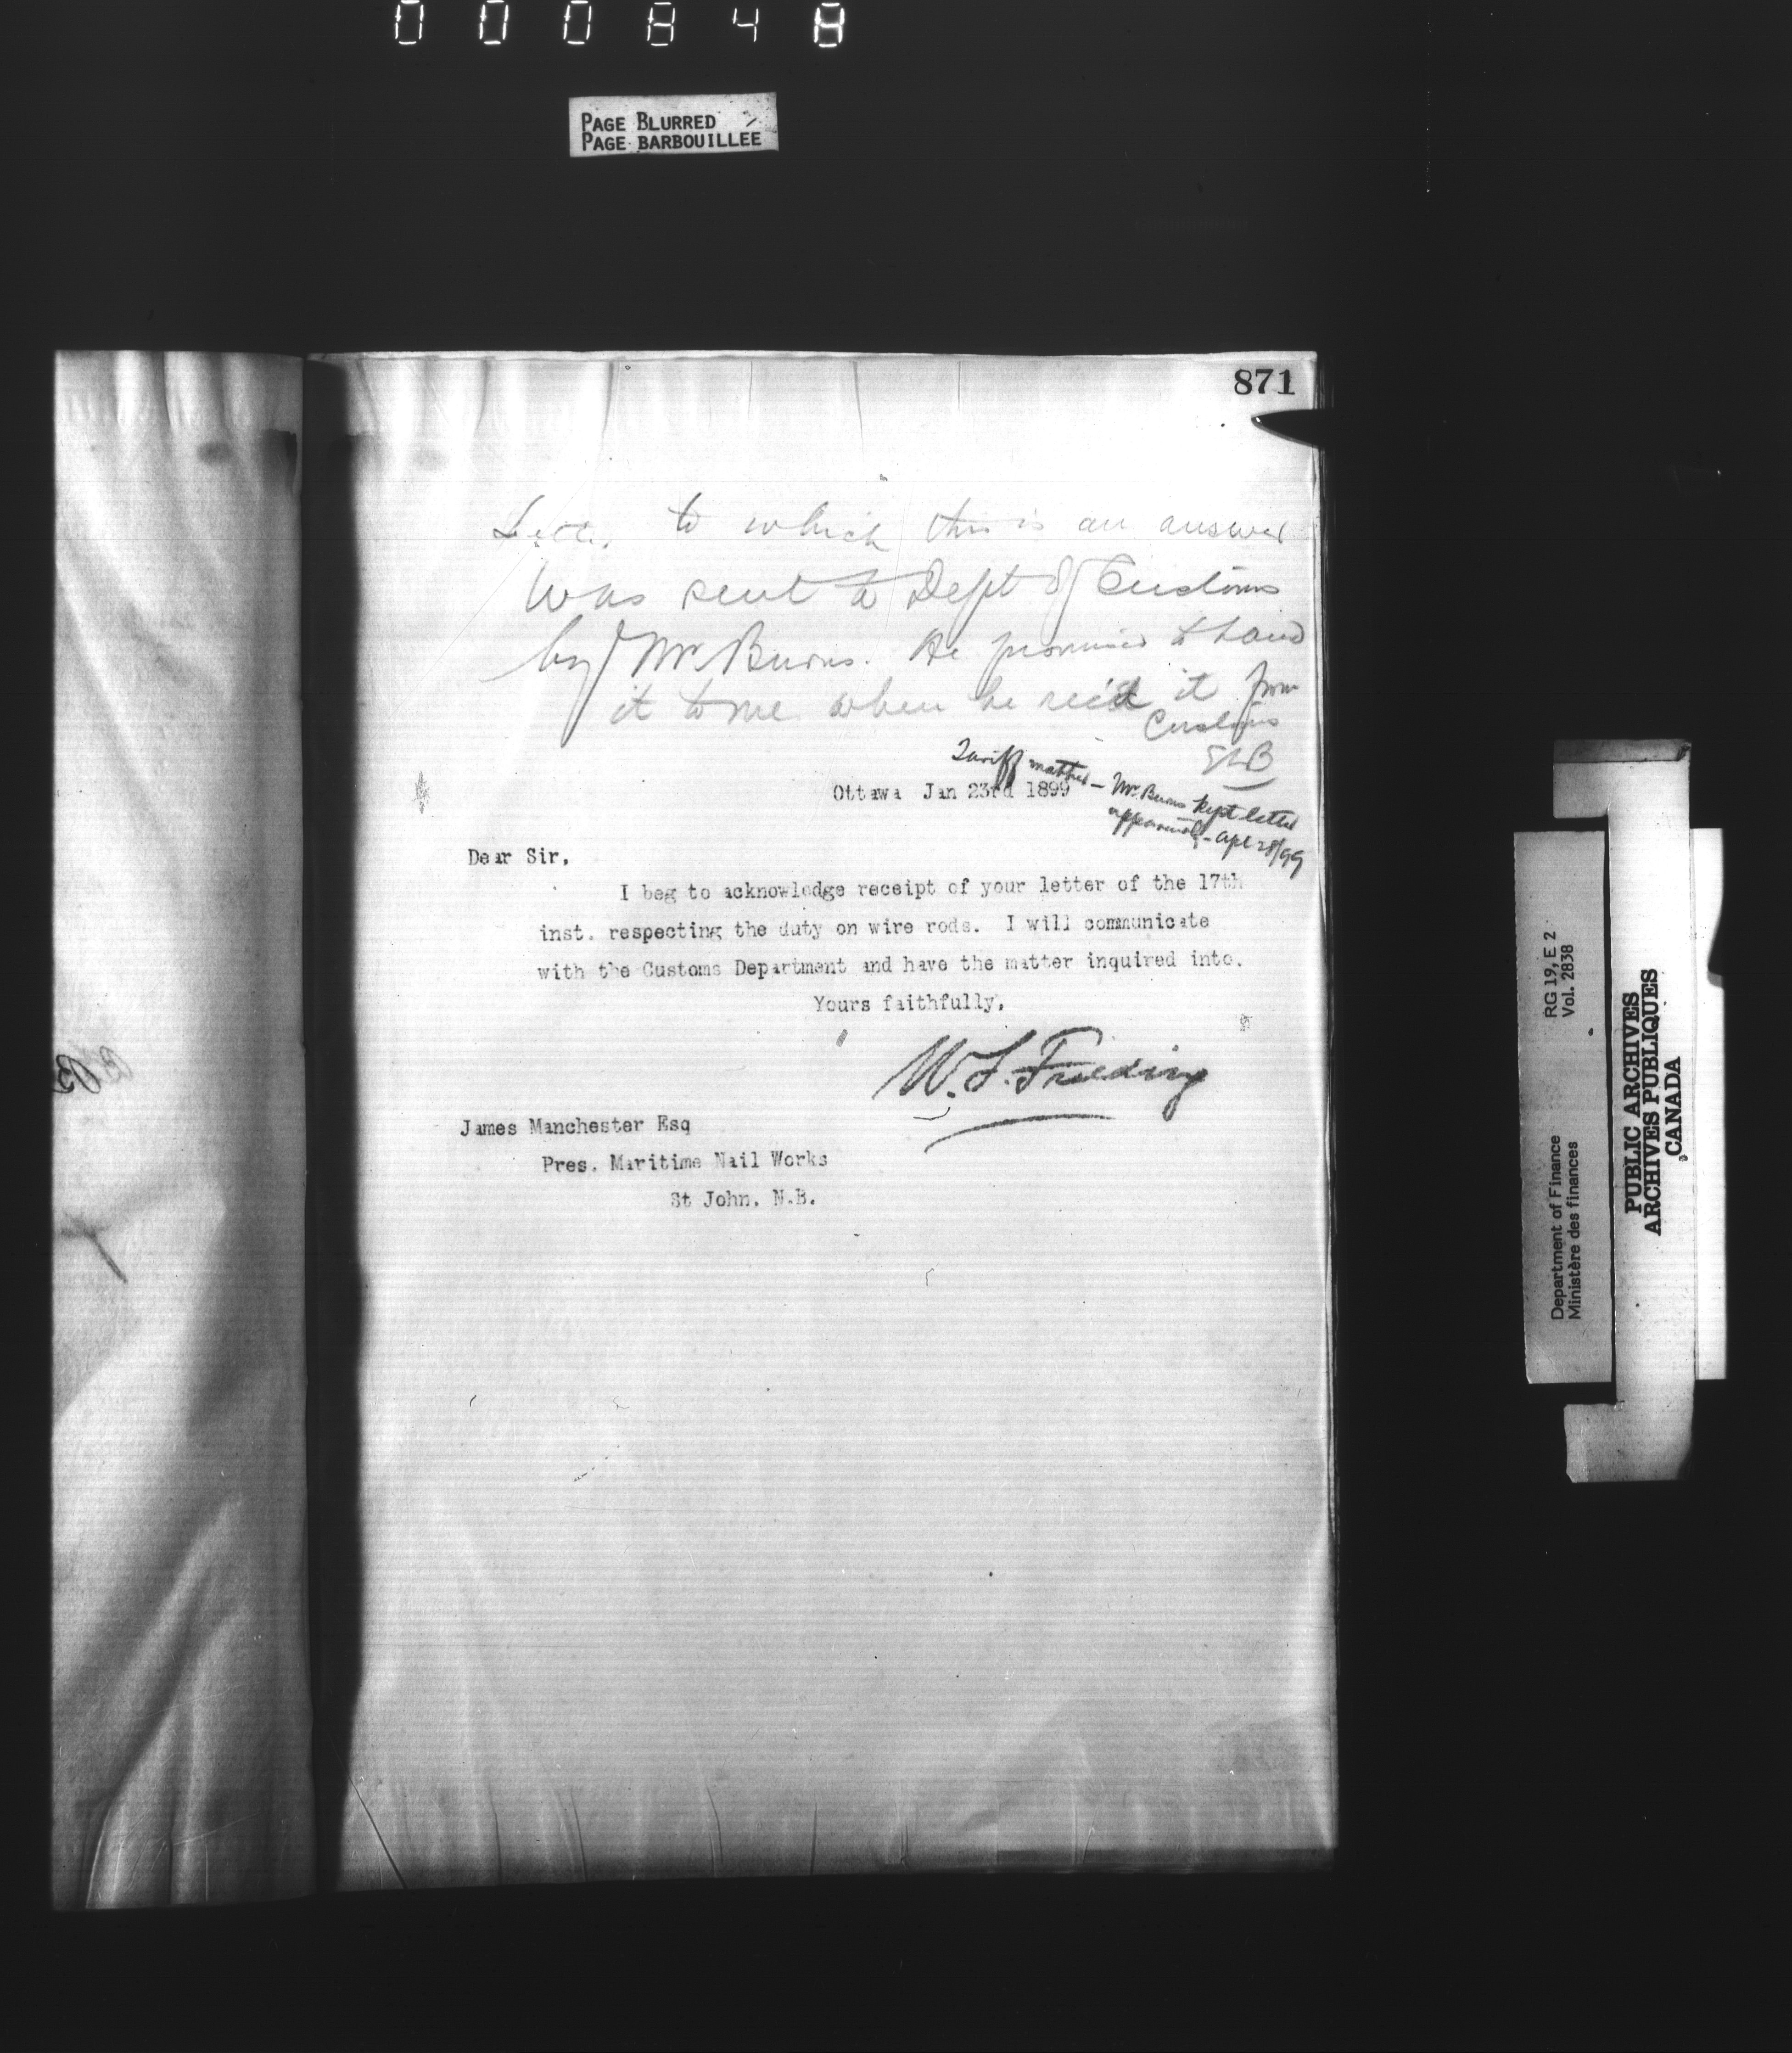 000848
PAGE BLURRED
PAGE BARBOUILLEE
871
Letter to which this is an answer
was sent to Dept of Customs
by Mr Burns. He promised to hand
it to me when he rec'd it from
Customs
Tariff matter – Mr. Burns kept letter
apparently – Apl 28/99
Ottawa Jan 23rd 1899
Dear Sir,
I beg to acknowledge receipt of your letter of the 17th
inst. respecting the duty on wire rods. I will communicate
with the Customs Department and have the matter inquired into.
Yours faithfully,
W. S. Fielding
James Manchester Esq
Pres. Maritime Nail Works
St John, N.B.
Department of Finance RG 19, E 2
Ministère des finances Vol. 2838
PUBLIC ARCHIVES
ARCHIVES PUBLIQUES
CANADA